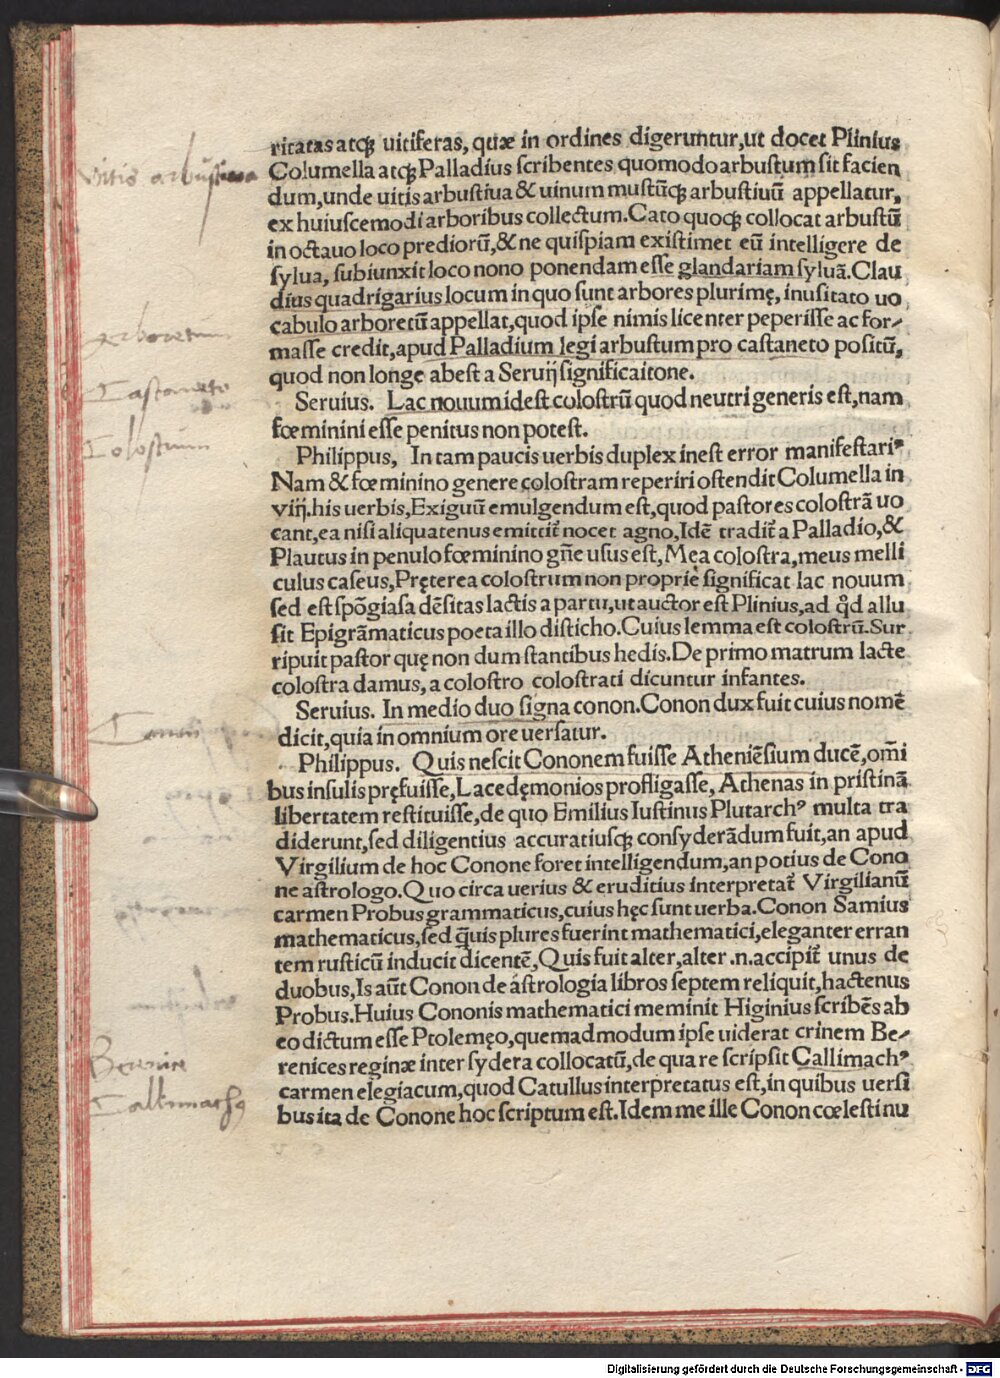 ritatas atq3 uitiferas, quæ in ordines digeruntur,ut docet Plinius
vitis arbustiua
Columella atq3 Palladius scribentes quomodo arbustum sit facien
dum,unde uitis arbustiua & uinum mustūq3 arbustiuū appellatur,
ex huiuscemodi arboribus collectum.Cato quoq3 collocat arbustū
in octauo loco prediorū,& ne quispiam existimet eū intelligere de
sylua, subiunxit loco nono ponendam esse glandariam syluā.Clau
dius quadrigarius locum in quo sunt arbores plurimę, inusitato uo
arboretum
cabulo arboretū appellat,quod ipse nimis licenter peperisse ac for-
masse credit,apud Palladium legi arbustum pro castaneto positū,
Castaneto
quod non longe abest a Seruij significaitone.
Seruius. Lac nouum idest colostrū quod neutri generis est,nam
Colostrum
fœminini esse penitus non potest.
Philippus, In tam paucis uerbis duplex inest error manifestariꝰ
Nam & fœminino genere colostram reperiri ostendit Columella in
viij.his uerbis,Exiguū emulgendum est,quod pastores colostrā uo
cant,ea nisi aliquatenus emittit̄ nocet agno,Idē tradit̄ a Palladio,&
Plautus in penulo fœminino gn̄e usus est, Męa colostra,meus melli
culus caseus,Pręterea colostrum non proprie significat lac nouum
sed est spōgiasa dēsitas lactis a partu,ut auctor est Plinius,ad qd̄ allu
sit Epigrāmaticus poeta illo disticho.Cuius lemma est colostrū.Sur
ripuit pastor quę non dum stantibus hedis.De primo matrum lacte
colostra damus, a colostro colostrati dicuntur infantes.
Seruius. In medio duo signa conon.Conon dux fuit cuius nomē
Conon
dicit,quia in omnium ore uersatur.
Philippus. Quis nescit Cononem fuisse Atheniēsium ducē,om̄i
bus insulis pręfuisse,Lacedęmonios profligasse, Athenas in pristinā
libertatem restituisse,de quo Emilius Iustinus Plutarchꝰ multa tra
diderunt,sed diligentius accuratiusq3 consyderādum fuit,an apud
Virgilium de hoc Conone foret intelligendum,an potius de Cono
ne astrologo.Quo circa uerius & eruditius interpretat̄ Virgilianū
carmen Probus grammaticus,cuius hęc sunt uerba.Conon Samius
mathematicus,sed q̄uis plures fuerint mathematici,eleganter erran
tem rusticū inducit dicentē,Quis fuit alter,alter .n.accipit̄ unus de
duobus,Is aūt Conon de astrologia libros septem reliquit,hactenus
Probus.Huius Cononis mathematici meminit Higinius scribēs ab
eo dictum esse Ptolemęo,quemadmodum ipse uiderat crinem Be-
Berenice
renices reginæ inter sydera collocatū,de qua re scripsit Callimachꝰ
Callimachꝰ
carmen elegiacum,quod Catullus interpretatus est,in quibus uersi
bus ita de Conone hoc scriptum est.Idem me ille Conon cœlesti nu
Digitalisierung gefördert durch die Deutsche Forschungsgemeinschaft - DFG